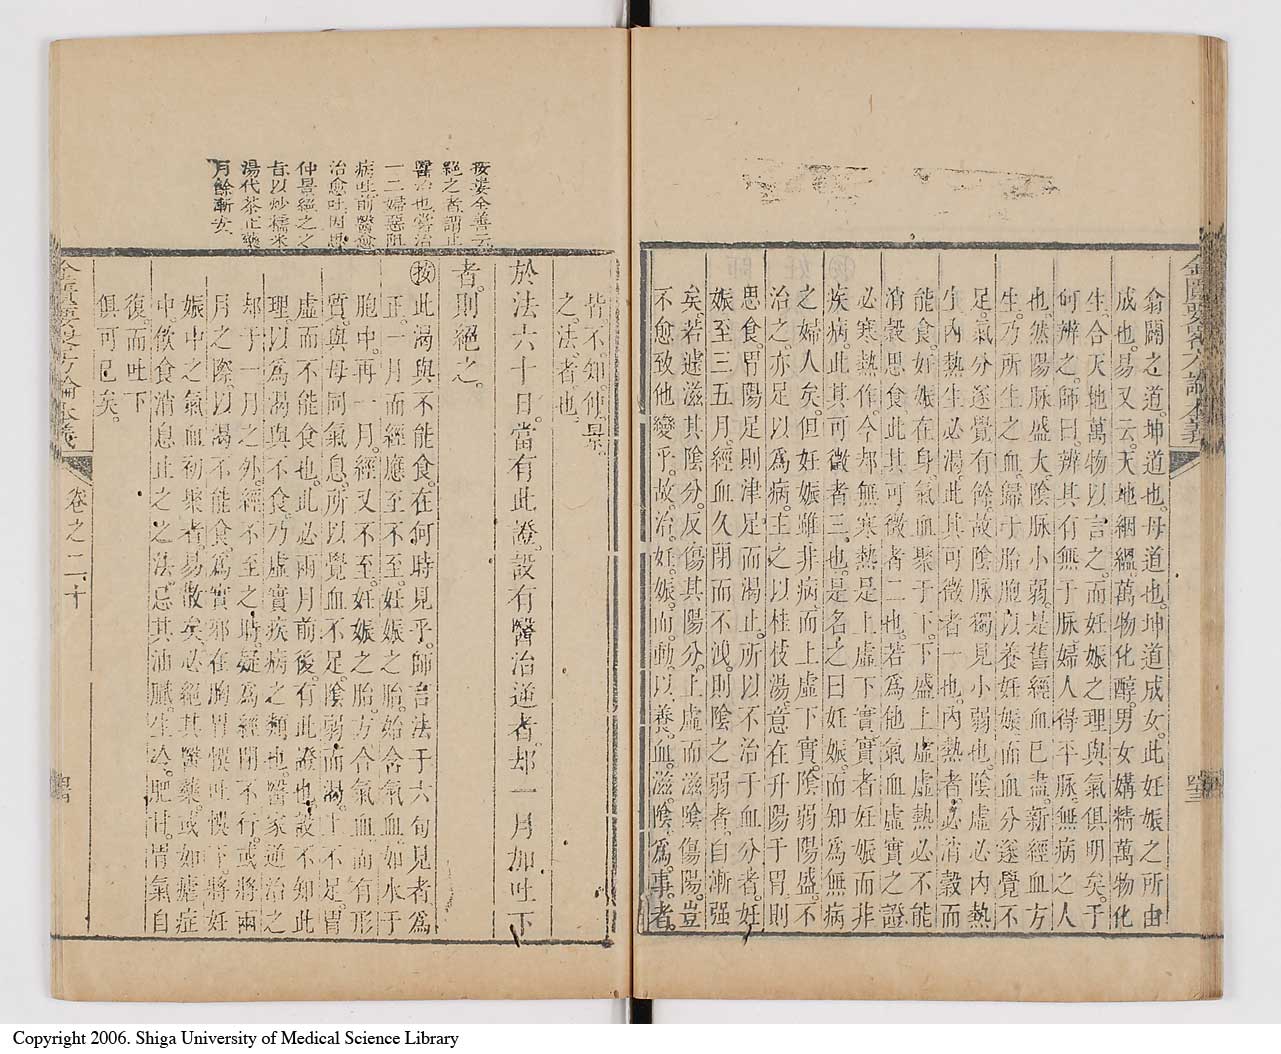 翕闢之道。坤道也。母道也。坤道成女。此妊娠之所由
成也。易又云。天地絪縕。萬物化醇。男女媾精。萬物化
生。合天地萬物以言之。而妊娠之理與氣俱明矣。于
何辨之。師曰。辨其有無于脈。婦人得平脈。無病之人
也。然陽脈盛大。陰脈小弱。是舊經血已盡。新經血方
生。乃所生之血。歸于胎胞。以養妊娠。而血分遂覺不
足。氣分遂覺有餘。故陰脈獨見小弱也。陰虛必內熱
生。內熱生必渴。此其可徵者一也。內熱者。必消穀而
能食。妊娠在身。氣血聚于下。下盛上虛。虛熱必不能
消穀思食。此其可徵者二也。若爲他氣血虛實之證
必寒熱作。今却無寒熱。是上虛下實。實者妊娠而非
疾病。此其可徵者三也。是名之曰妊娠。而知爲無病
之婦人矣。但妊娠雖非病。而上虛下實。陰弱陽盛。不
治之。亦足以爲病。主之以桂枝湯。意在升陽于胃。則
思食。胃陽足。則津足而渴止。所以不治于血分者。妊
娠至三五月。經血久閉而不洩。則陰之弱者。自漸强
矣。若遽滋其陰分。反傷其陽分。上虛而滋陰傷陽。豈
不愈致他變乎。故治妊娠。而動以養血滋陰爲事者。
金匱要畧方論本義
四三
皆。不。知。仲。景。
之。法。者。也。
於法六十日。當有此證。設有醫治逆者。却一月加吐下
者。則絕之。
按此渴與不能食。在何時見乎。師言法于六旬見者。爲
正。一月而經應至不至。妊娠之胎。始含氣血。如水于
胞中。再一月。經又不至。妊娠之胎。方合氣血。而有形
質。與母同氣息。所以覺血不足。陰弱而渴。上不足。胃
虛而不能食也。此必兩月前後。有此證也。設不知此
理。以爲渴與不食。乃虛實疾病之類也。醫家逆治之
却于一月之外。經不至之時。疑爲經閉不行。或將兩
月之際。以渴不能食。爲實邪在胸胃。悞吐悞下。將妊
娠中之氣血初聚者。易散矣。必絕其醫藥。或如瘧症
中。飲食消息止之之法。忌其油膩。生冷。肥甘。胃氣自
復。而吐下
俱可已矣。
按婁全善云
絕之者。謂止
醫治也。嘗治
一二婦惡阻
病吐。前醫愈
治愈吐。因思
仲景絕之之
旨。以炒糯米
湯代茶。止藥
月餘漸安
金匱要畧方論本義
卷之二十
四四
Copyright 2006. Shiga University of Medical Science Library